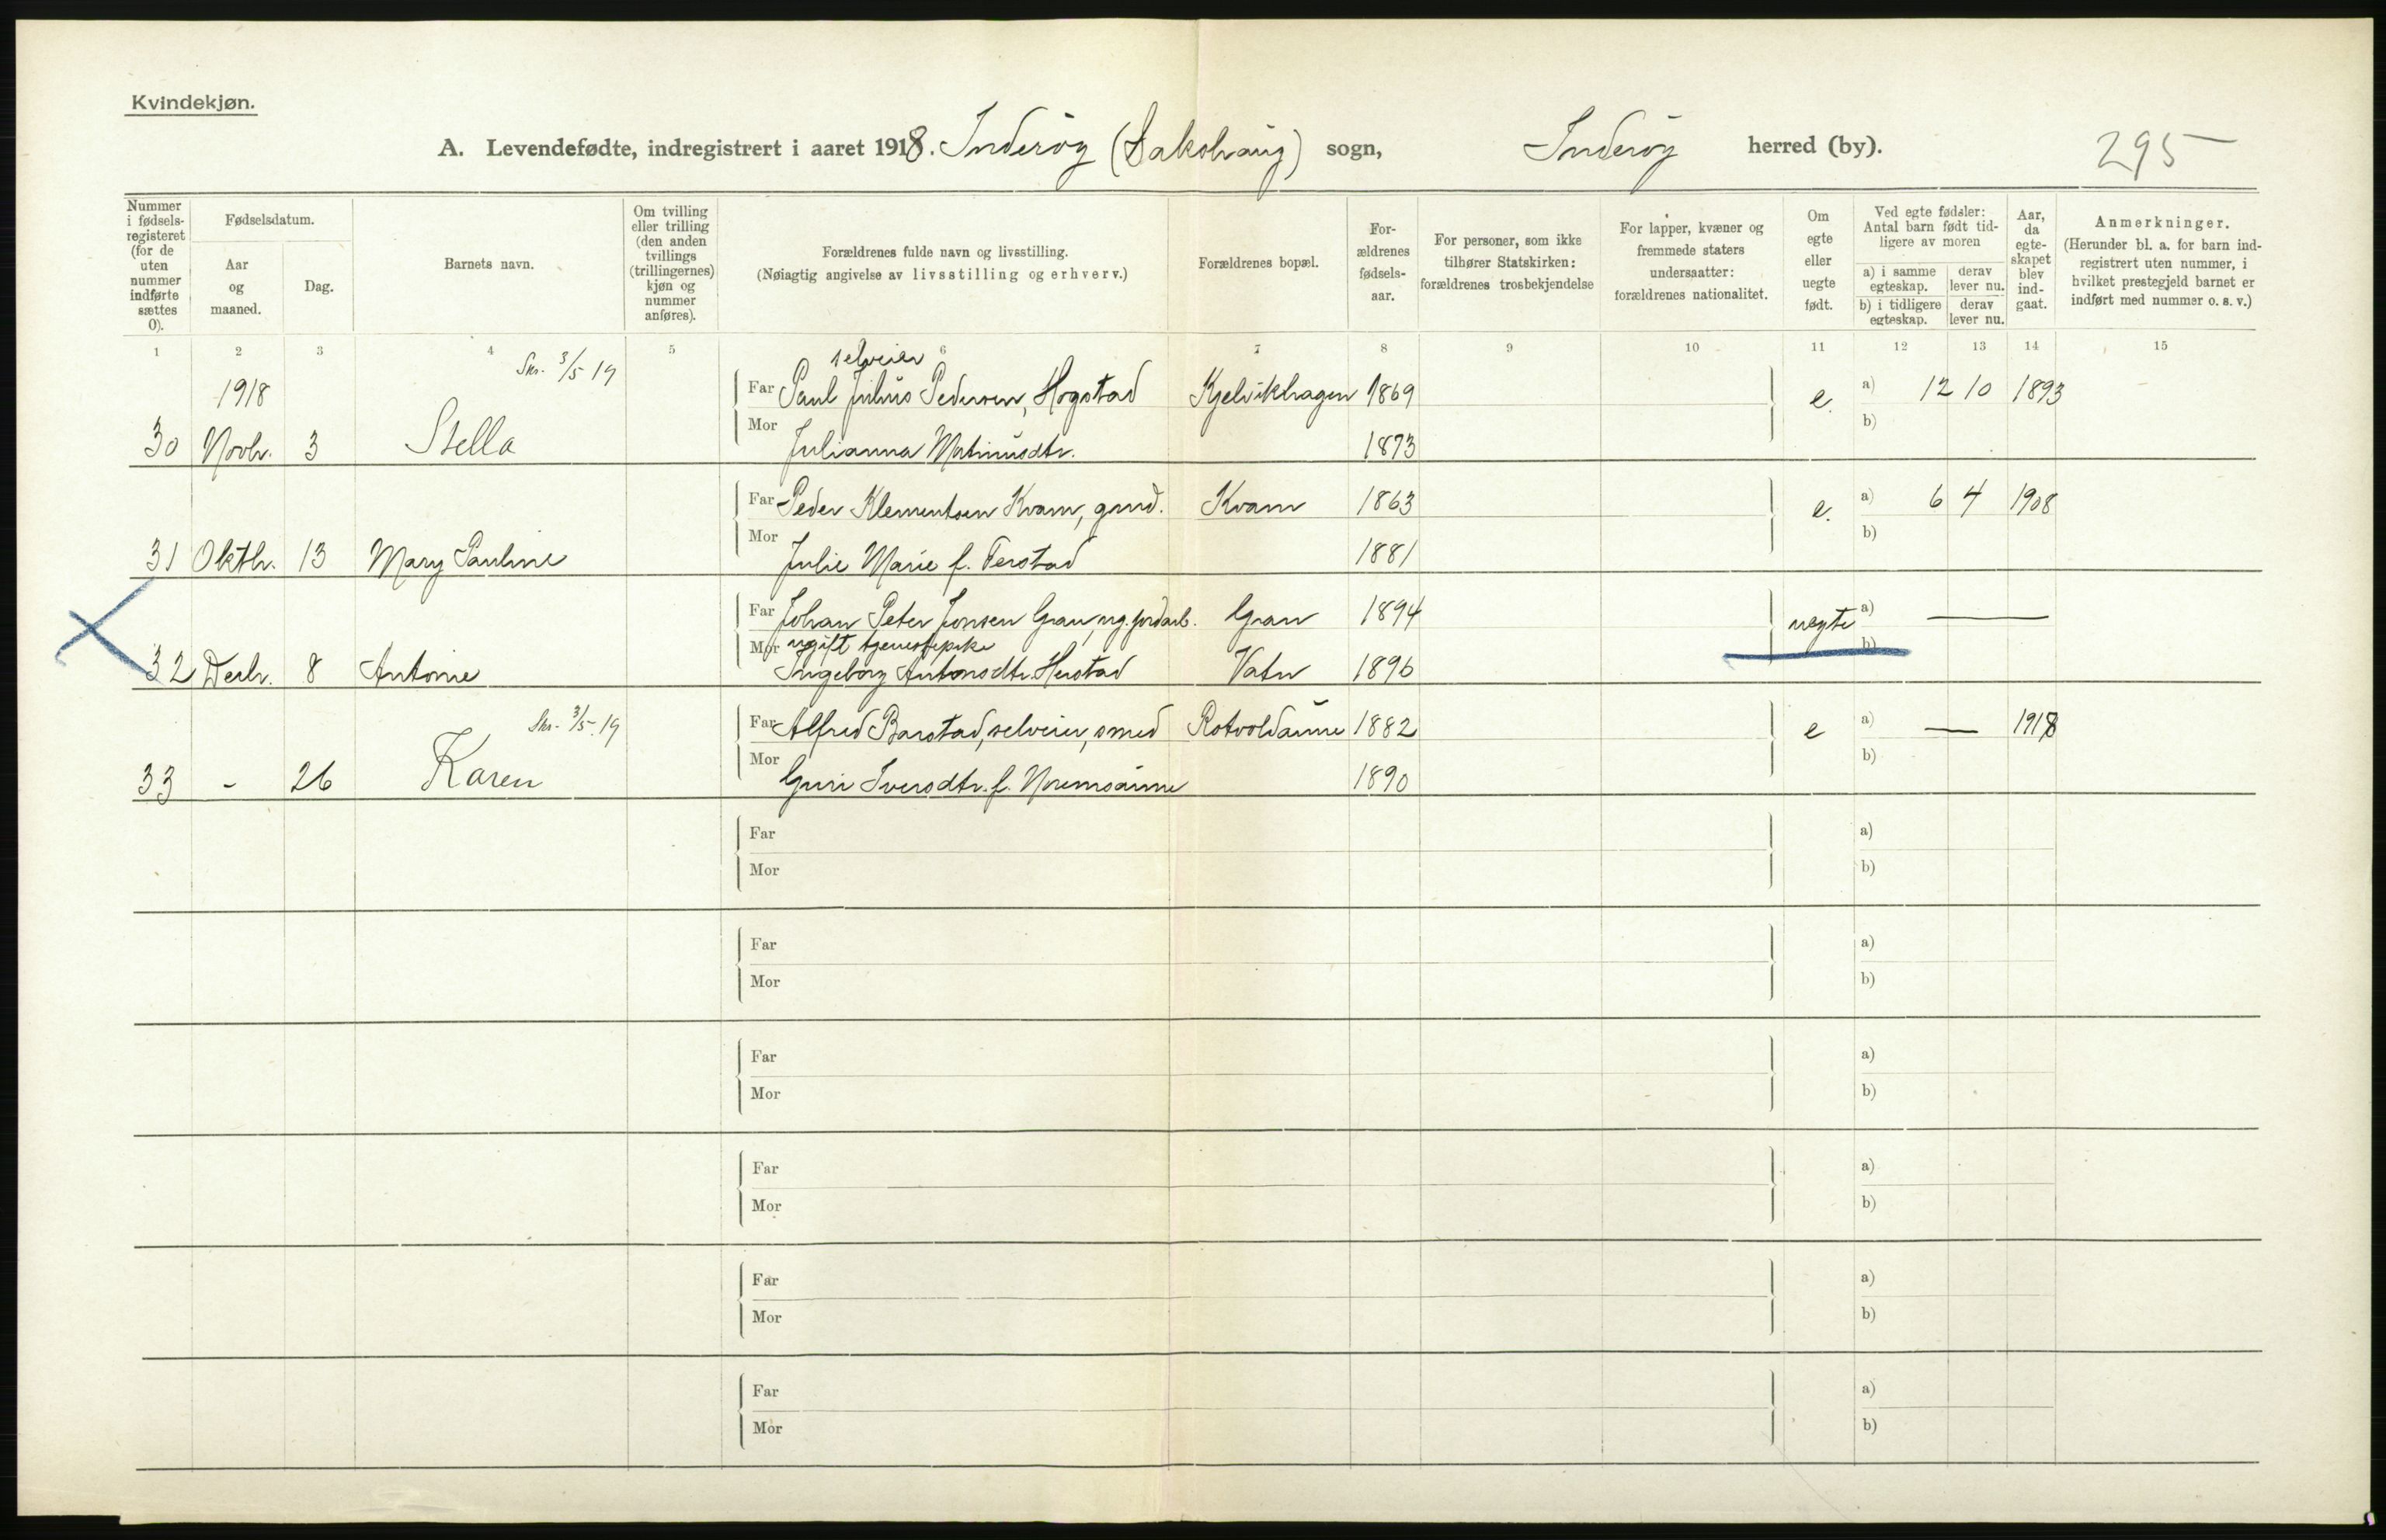 Kvindekjøn.
A. Levendefødte, indregistrert i aaret 1918. Inderøy (Sakshaug) sogn, Inderøy herred (by). 295
Nummer i fødselsregisteret (for de uten nummer indførte sættes 0).
Fødselsdatum.
Aar og maaned.
Dag.
Barnets navn.
Om tvilling eller trilling (den anden tvillings (trillingernes) kjøn og nummer anføres).
Forældrenes fulde navn og livsstilling.
(Nøiagtig angivelse av livsstilling og erhverv.)
Forældrenes bopæl.
Forældrenes fødselsaar.
For personer, som ikke tilhører Statskirken: forældrenes trosbekjendelse
For lapper, kvæner og fremmede staters undersaatter: forældrenes nationalitet.
Om egte eller uegte født.
Ved egte fødsler: Antal barn født tidligere av moren
a) i samme egteskap. derav lever nu.
b) i tidligere egteskap. derav lever nu.
Aar, da egteskapet blev indgaat.
Anmerkninger.
(Herunder bl. a. for barn indregistrert uten nummer, i hvilket prestegjeld barnet er indført med nummer o. s. v.)
1 2 3 4 5 6 7 8 9 10 11 12 13 14 15
Skr. 3/5 19 selveier
1918 Far Paul Julius Pedersen, Hogstad Kjelvikhagen 1869 e. a) 12 10 1893
30 Novbr. 3 Stella Mor Julianna Martinusdtr. 1873 b)
Far Peder Klementsen Kvam, grd. Kvam 1863 e. a) 6 4 1908
31 Oktbr. 13 Mary Pauline Mor Julie Marie f. Ferstad 1881 b)
Far Johan Peter Jonsen Gran, ug. jordarb. Gran 1894 uegte a) —
ugift tjenestepike
32 Desbr. 8 Antonie Mor Ingeborg Antonsdtr. Herstad Vatn 1896 b)
Skr. 3/5 19 Far Alfred Barstad, selveier, smed Rotvoldaune 1882 e a) — 1918
33 - 26 Karen Mor Guri Iversdtr. f. Noremsaune 1890 b)
Far a)
Mor b)
Far a)
Mor b)
Far a)
Mor b)
Far a)
Mor b)
Far a)
Mor b)
Far a)
Mor b)